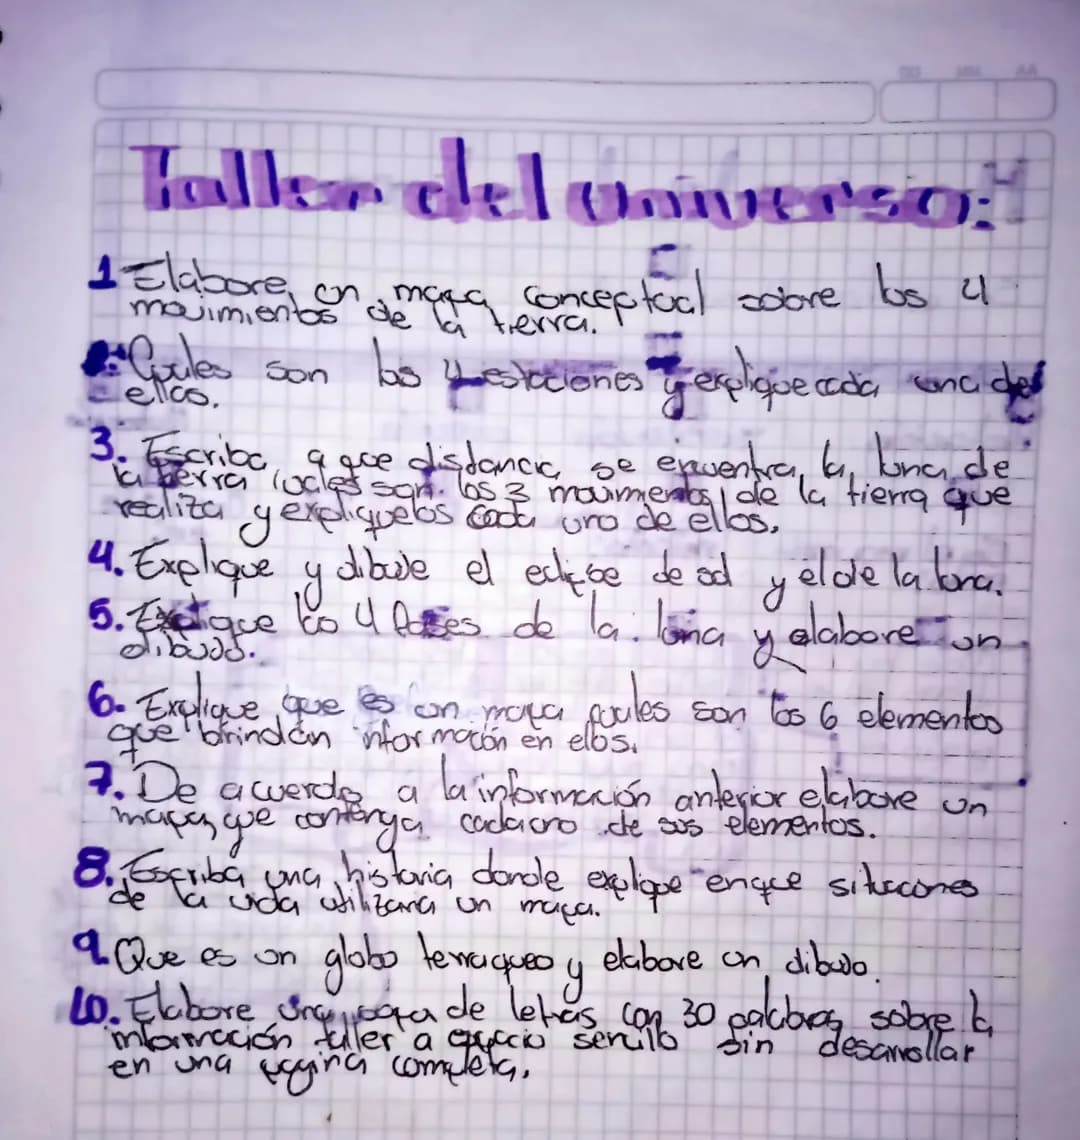 Taller del universo:
1 Elabore un mapa conceptual sobre los 4
movimientos de la tierra.
Cuales son las 4 estaciones y explique cada una de
ellas.
3. Escriba a que distancia se encuentra la luna de
la tierra cuales son los 3 movimientos de la tierra que
realiza y expliquelos cada uno de ellos.
4. Explique y dibuje el eclipse de sol y el de la luna.
5. Explique las 4 fases de la luna y elabore un
dibujos.
6. Explique que es un mapa cuales son los 6 elementos
que brindan información en ellos.
7. De acuerdo a la información anterior elabore un
mapa que contenga cada uno de sus elementos.
8. Escriba una historia donde explique en que situaciones
de la vida utilizaria un mapa.
9. Que es un globo terraqueo y elabore un dibujo.
10. Elabore una sopa de letras con 30 palabras sobre la
información taller a espacio sencillo sin desarrollar
en una pagina completa.